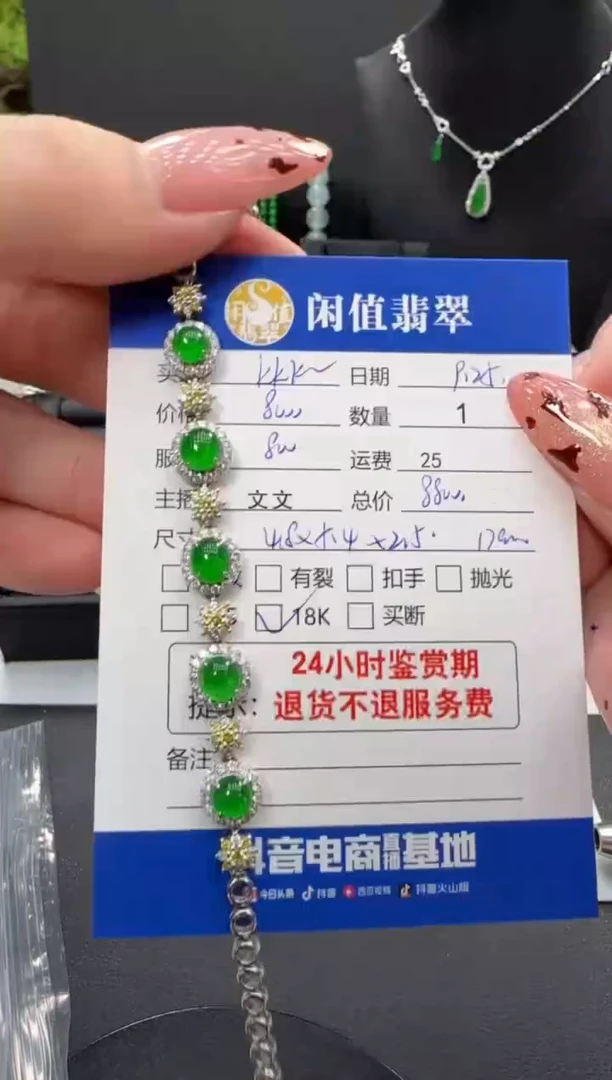 闲值翡翠
买 kkk 日期 9.25.
价格 8000 数量 1
服 800 运费 25
主播 文文 总价 8800.
尺寸 4.8x5.4x2.5. 17cm
有裂 扣手 抛光
18K 买断
24小时鉴赏期
提示: 退货不退服务费
备注
抖音电商直播基地
今日头条 抖音 西瓜视频 抖音火山版